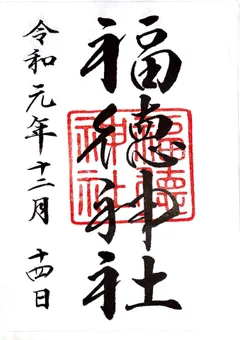 福徳神社
福徳
神社
令和元年十二月 十四日